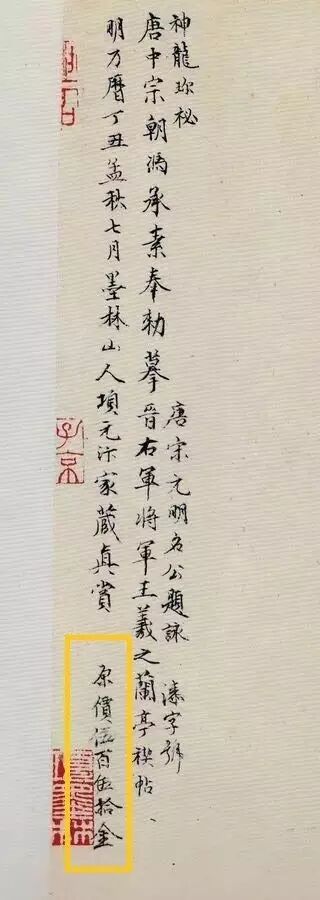 神龍珎祕
唐宋元明名公題詠 溱字號
唐中宗朝馮承素奉勅摹晉右軍將軍王羲之蘭亭禊帖
明万曆丁丑孟秋七月墨林山人項元汴家藏真賞
原價伍百伍拾金
子京